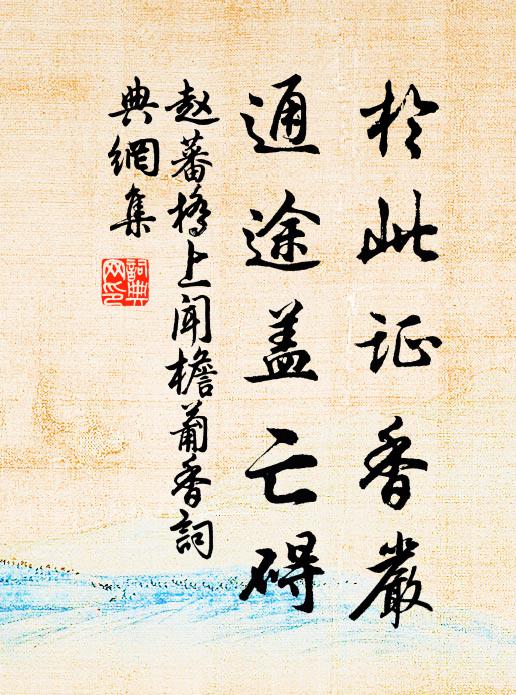 於此证香嚴
通途盖亡碍
赵蕃橋上闻檐蔔香詞
典網集
詞典
网印